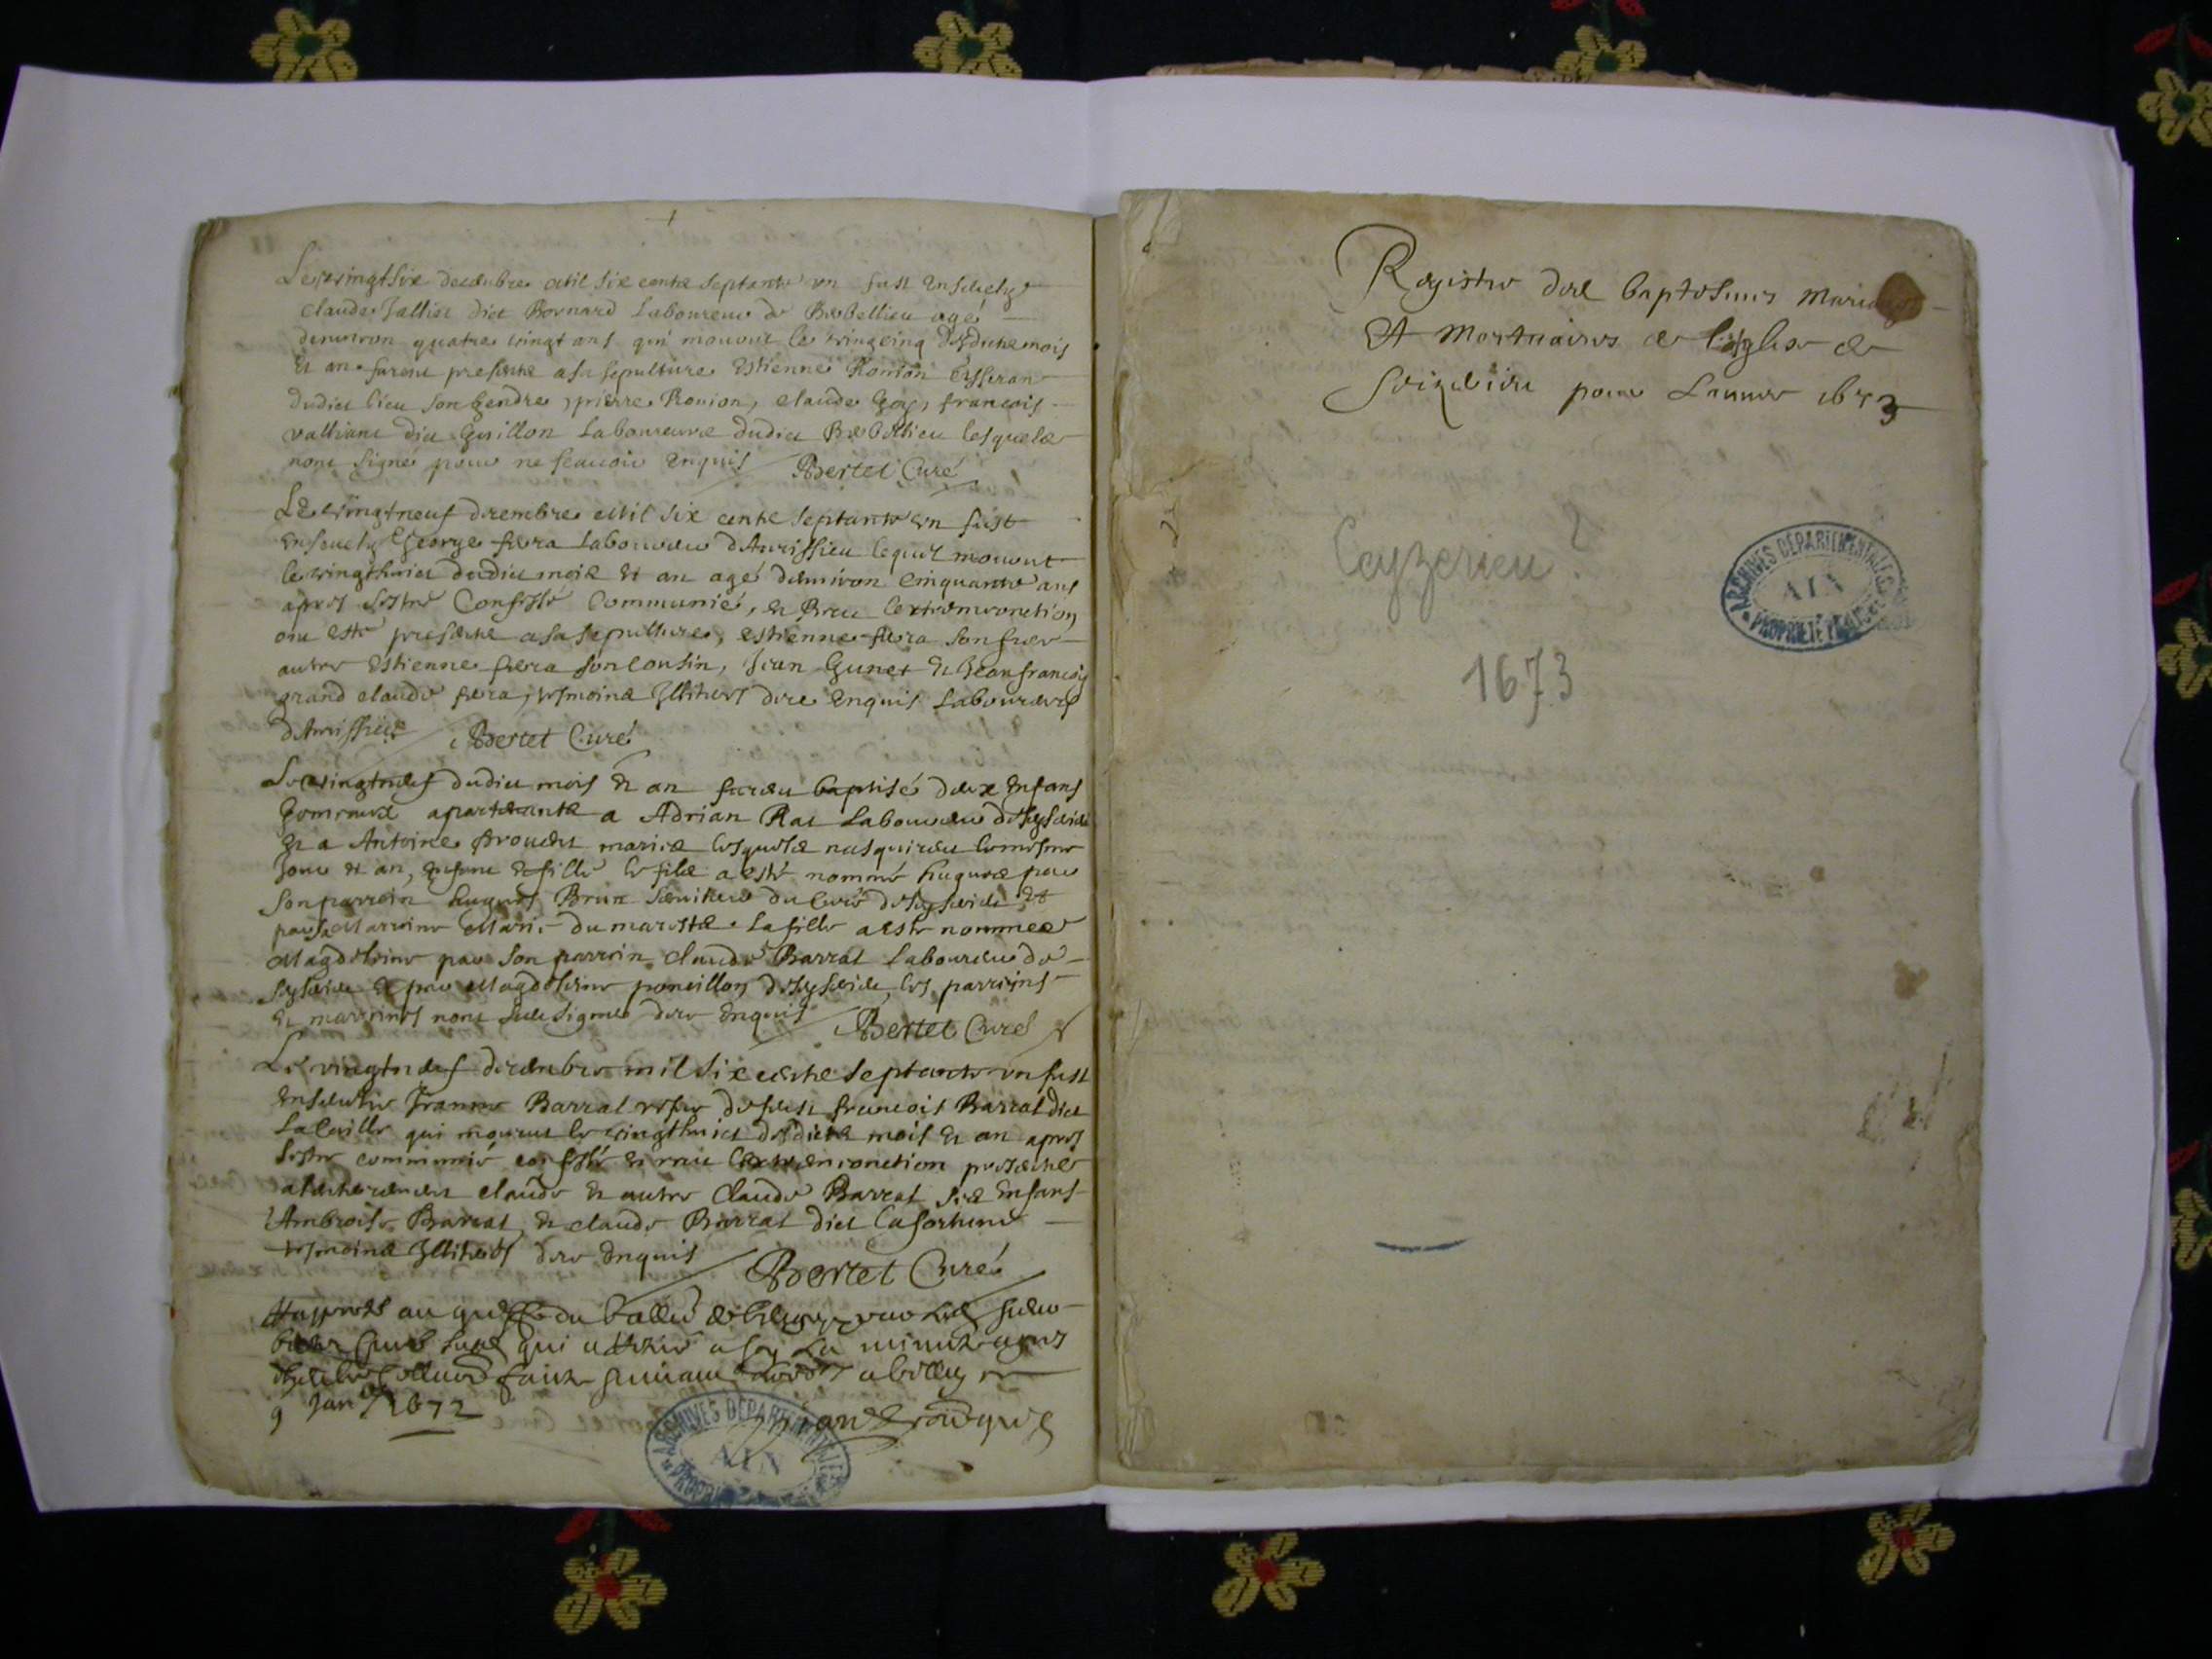 Le vingtsix decembre Mil six cents septante un fust ensevely
claude Jallier dict Bornard Laboureur de agé
denviron quatre vingt ans qui mourut le vingcinq desdicts mois
et an furent presents a sa sepulture Estienne Ronion
dudict lieu son gendre, pierre Ronion, claude Goy, francois
valliant dict Guillon Laboureurs dudict lesquels
nont signé pour ne scauoir enquis Bertet Curé
Le vingtneuf decembre Mil six cents septante un fust
ensevely George fiera Laboureur dAvrissieu lequel mourut
le vingthuict dudict mois et an agé denviron cinquante ans
apres sestre Confessé Communié, et Receu lextremeonction
ont esté presents a sa sepulture, estienne fiera son frere
autre Estienne fiera son cousin, Jean Gunet et Jean francois
grand claude fiera, tesmoins Illiteres dere enquis Laboureurs
dAvrissieu Bertet Curé
Le vingtneuf dudict mois et an furent baptisé deux enfans
gemeaux apartenants a Adrian Rat Laboureur de
et a Antoine mariés lesquels nasquirent le mesme
Jour et an, et fille le fils a esté nommé hugues par
son parrein hugues Brun serviteur du Curé de et
par sa Marrine Marie du marest. La fille a esté nommee
Magdeleine par son parrein claude Barrat Laboureur de
et par Magdeleine poncillon de les parreins
et marrines nont sceu signer dere enquis Bertet Curé
Le vingtneuf decembre mil six cents septante un fust
ensevelie Jeanne Barrat vefve de feust francois Barrat dict
qui mourut le vingthuict desdicts mois et an apres
sestre communié confessé et receu lextremeonction presents
a lenterrement claude et autre Claude Barrat ses enfans
Ambroise Barrat, et claude Barrat dict Lafortune
tesmoins Illiteres dere enquis Bertet Curé
au greffe du Bailliage de par
Curé qui a retiré a soy La minute apres
faicte suivant a belley ce
9 Janr 1672
ARCHIVES DÉPARTEMENTALES
AIN
Registre des baptesmes Mariages
Et Mortuaires de l'esglise de
pour Lannee 1673
Ceyzerieu ?
1673
ARCHIVES DÉPARTEMENTALES
AIN
PROPRIÉTÉ PUBLIQUE